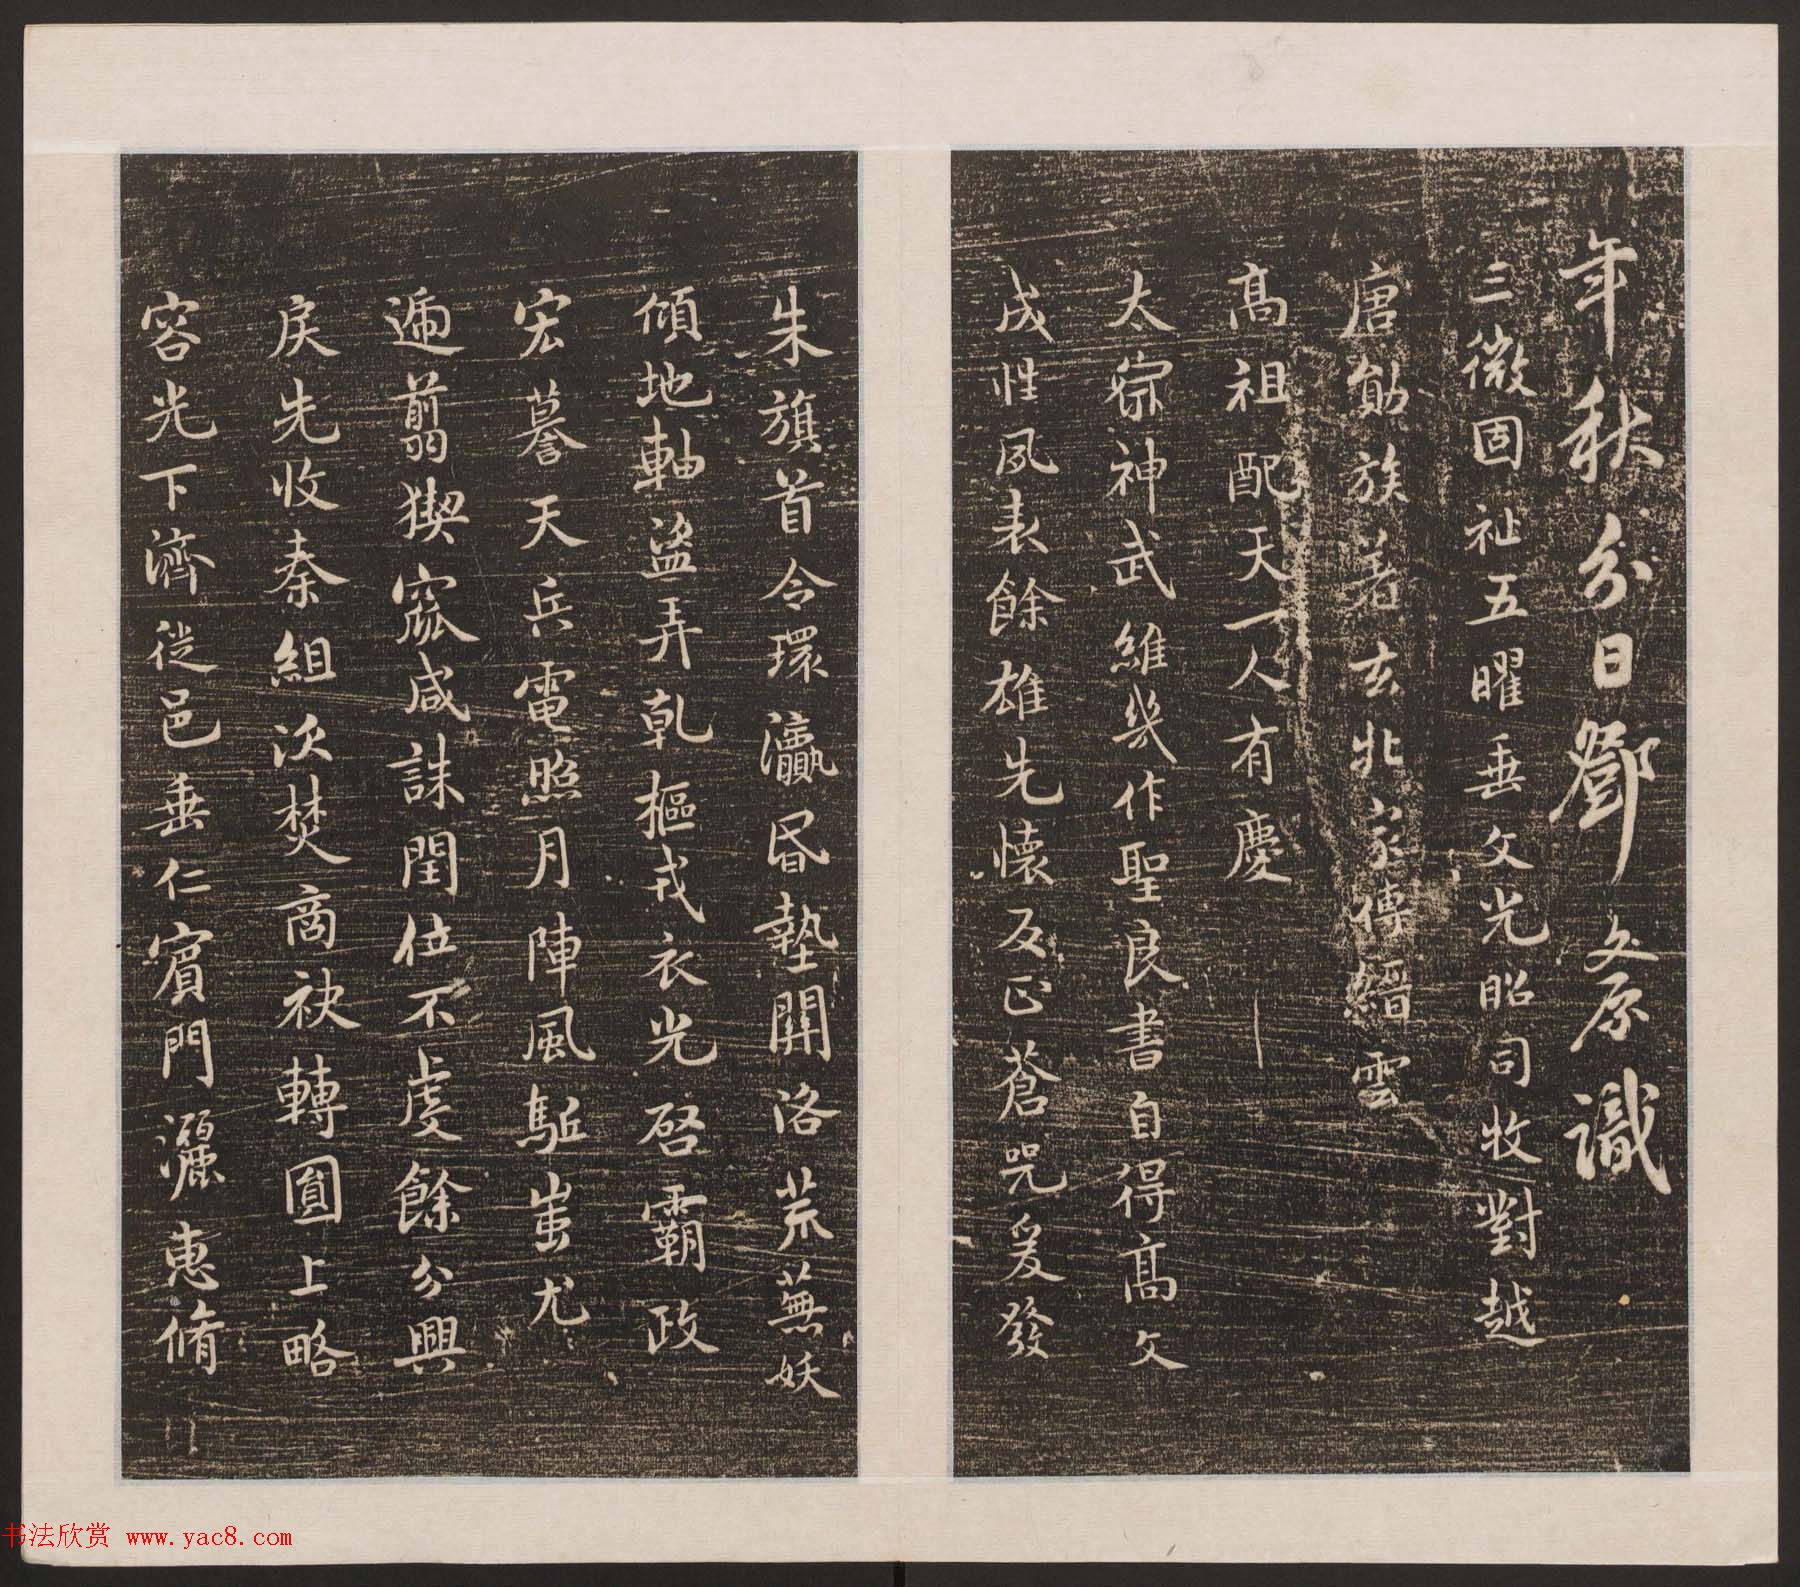 年秋分日鄧文原識
三微固祉五曜垂文光昭司牧對越
唐勛族著玄北家傳縉雲
高祖配天一人有慶
太宗神武維幾作聖良書自得高文
成性夙表餘雄先懷反正蒼兕爰發
朱旗首令環瀛昏墊關洛荒蕪妖
傾地軸盜弄乾樞戎衣光啓霸政
宏謩天兵電照月陣風駈蚩尤
遍翦猰窳咸誅閏位不虔餘分興
戾先收秦組次焚商袂轉圓上略
容光下濟從邑垂仁賓門灑惠脩
书法欣赏 www.yac8.com